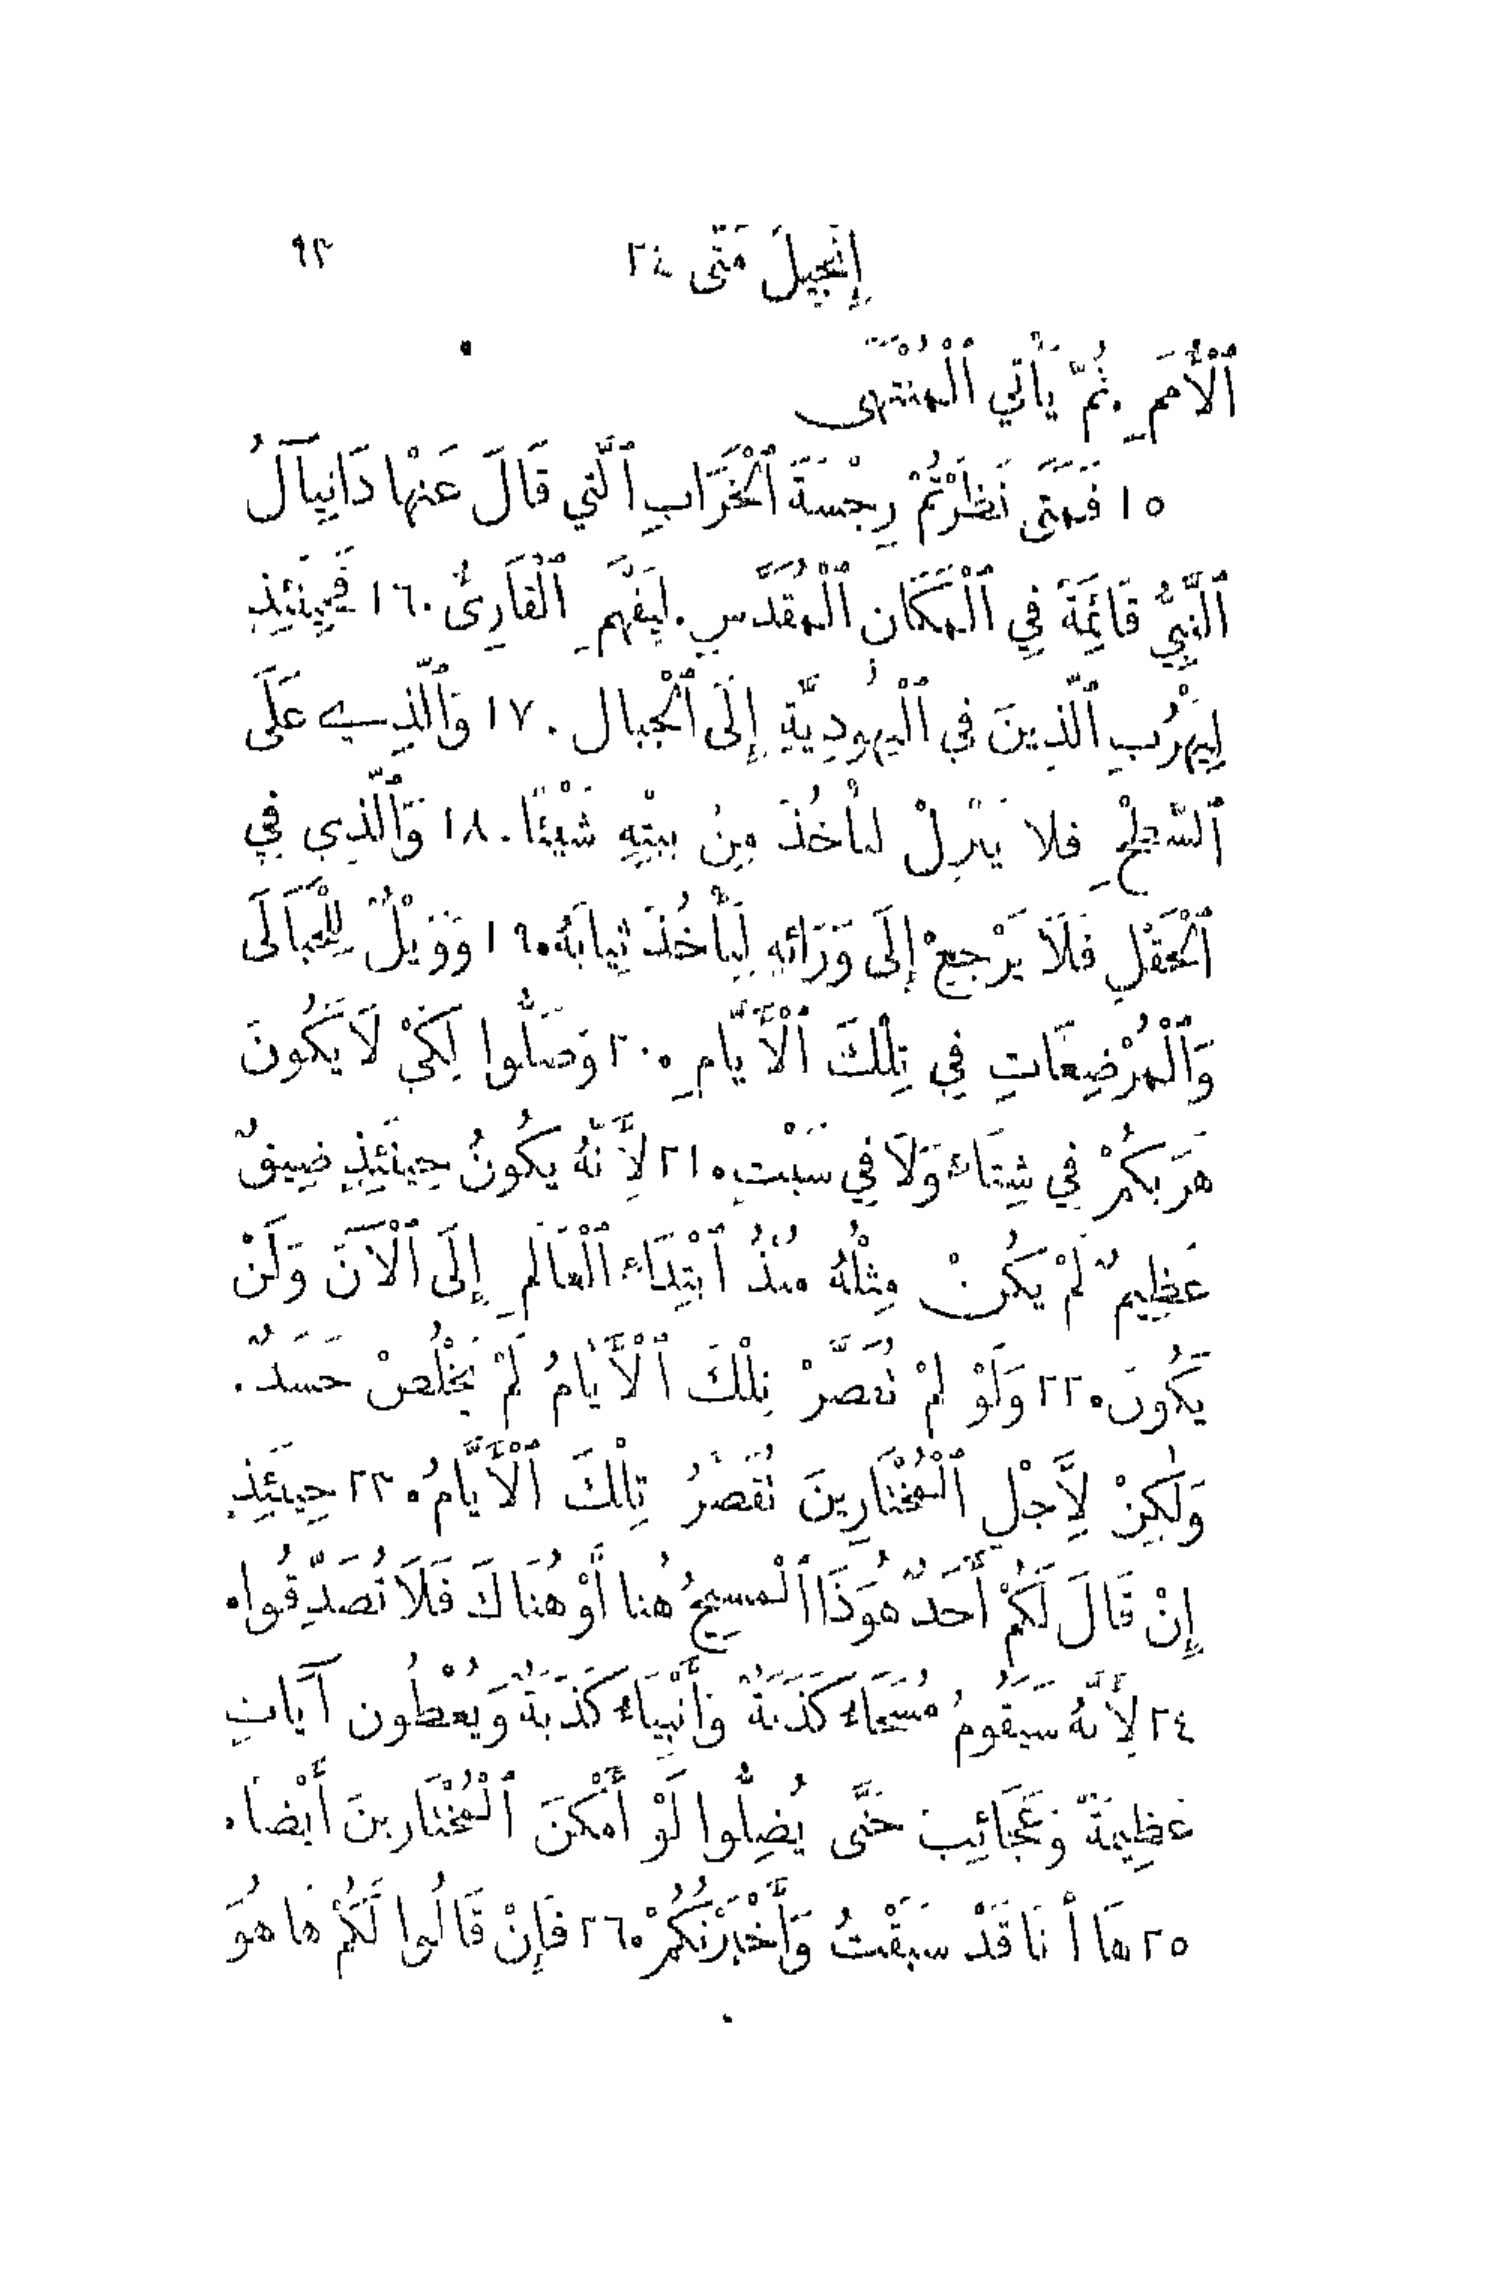 إِنْجِيلَ مَتَّى ٢٤ ٩٣
ٱلْأُمَمِ. ثُمَّ يَأْتِي ٱلْمُنْتَهَى
١٥ فَمَتَى نَظَرْتُمْ رِجْسَةَ ٱلْخَرَابِ ٱلَّتِي قَالَ عَنْهَا دَانِيآلُ
ٱلنَّبِيُّ قَائِمَةً فِي ٱلْمَكَانِ ٱلْمُقَدَّسِ. لِيَفْهَمِ ٱلْقَارِئُ. ١٦ فَحِينَئِذٍ
لِيَهْرُبِ ٱلَّذِينَ فِي ٱلْيَهُودِيَّةِ إِلَى ٱلْجِبَالِ. ١٧ وَٱلَّذِي عَلَى
ٱلسَّطْحِ فَلَا يَنْزِلْ لِيَأْخُذَ مِنْ بَيْتِهِ شَيْئًا. ١٨ وَٱلَّذِي فِي
ٱلْحَقْلِ فَلَا يَرْجِعْ إِلَى وَرَائِهِ لِيَأْخُذَ ثِيَابَهُ. ١٩ وَوَيْلٌ لِلْحَبَالَى
وَٱلْمُرْضِعَاتِ فِي تِلْكَ ٱلْأَيَّامِ. ٢٠ وَصَلُّوا لِكَيْ لَا يَكُونَ
هَرَبُكُمْ فِي شِتَاءٍ وَلَا فِي سَبْتٍ. ٢١ لِأَنَّهُ يَكُونُ حِينَئِذٍ ضِيقٌ
عَظِيمٌ لَمْ يَكُنْ مِثْلُهُ مُنْذُ ٱبْتِدَاءِ ٱلْعَالَمِ إِلَى ٱلْآنَ وَلَنْ
يَكُونَ. ٢٢ وَلَوْ لَمْ تُقَصَّرْ تِلْكَ ٱلْأَيَّامُ لَمْ يَخْلُصْ جَسَدٌ.
وَلٰكِنْ لِأَجْلِ ٱلْمُخْتَارِينَ تُقَصَّرُ تِلْكَ ٱلْأَيَّامُ. ٢٣ حِينَئِذٍ
إِنْ قَالَ لَكُمْ أَحَدٌ هُوَذَا ٱلْمَسِيحُ هُنَا أَوْ هُنَاكَ فَلَا تُصَدِّقُوا.
٢٤ لِأَنَّهُ سَيَقُومُ مُسَحَاءُ كَذَبَةٌ وَأَنْبِيَاءُ كَذَبَةٌ وَيُعْطُونَ آيَاتٍ
عَظِيمَةً وَعَجَائِبَ حَتَّى يُضِلُّوا لَوْ أَمْكَنَ ٱلْمُخْتَارِينَ أَيْضًا.
٢٥ هَا أَنَا قَدْ سَبَقْتُ وَأَخْبَرْتُكُمْ. ٢٦ فَإِنْ قَالُوا لَكُمْ هَا هُوَ